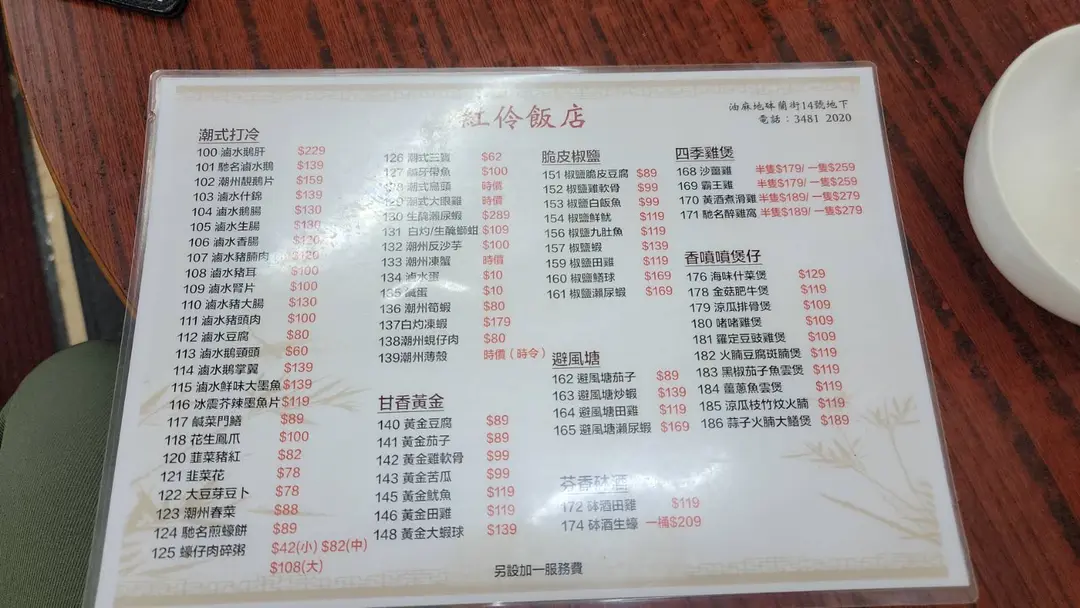 紅伶飯店
油麻地砵蘭街14號地下
電話：3481 2020
潮式打冷
100 滷水鵝肝 $229
101 馳名滷水鵝 $139
102 潮州靚鵝片 $159
103 滷水什錦 $139
104 滷水鵝腸 $130
105 滷水生腸 $130
106 滷水香腸 $120
107 滷水豬腩肉 $120
108 滷水豬耳 $100
109 滷水腎片 $100
110 滷水豬大腸 $130
111 滷水豬頭肉 $100
112 滷水豆腐 $80
113 滷水鵝頸頭 $60
114 滷水鵝掌翼 $139
115 滷水鮮味大墨魚 $139
116 冰震芥辣墨魚片 $119
117 鹹菜門鱔 $89
118 花生鳳爪 $100
120 韮菜豬紅 $82
121 韭菜花 $78
122 大豆芽豆卜 $78
123 潮州春菜 $88
124 馳名煎蠔餅 $89
125 蠔仔肉碎粥 $42(小) $82(中)
$108(大)
126 潮式三寶 $62
127 鹹牙帶魚 $100
128 潮式烏頭 時價
129 潮式大眼雞 時價
130 生醃瀨尿蝦 $289
131 白灼/生醃螄蚶 $109
132 潮州反沙芋 $100
133 潮州凍蟹 時價
134 滷水蛋 $10
135 鹹蛋 $10
136 潮州筍蝦 $80
137白灼凍蝦 $179
138潮州蜆仔肉 $80
139潮州薄殼 時價（時令）
甘香黃金
140 黃金豆腐 $89
141 黃金茄子 $89
142 黃金雞軟骨 $99
143 黃金苦瓜 $99
145 黃金魷魚 $119
146 黃金田雞 $119
148 黃金大蝦球 $139
脆皮椒鹽
151 椒鹽脆皮豆腐 $89
152 椒鹽雞軟骨 $99
153 椒鹽白飯魚 $99
154 椒鹽鮮魷 $119
156 椒鹽九肚魚 $119
157 椒鹽蝦 $139
159 椒鹽田雞 $119
160 椒鹽鱔球 $169
161 椒鹽瀨尿蝦 $169
避風塘
162 避風塘茄子 $89
163 避風塘炒蝦 $139
164 避風塘田雞 $119
165 避風塘瀨尿蝦 $169
芬香砵酒
172 砵酒田雞 $119
174 砵酒生蠔 一桶$209
四季雞煲
168 沙薑雞 半隻$179/一隻$259
169 霸王雞 半隻$179/一隻$259
170 黃酒煮滑雞 半隻$189/一隻$279
171 馳名醉雞窩 半隻$189/一隻$279
香噴噴煲仔
176 海味什菜煲 $129
178 金菇肥牛煲 $119
179 涼瓜排骨煲 $109
180 啫啫雞煲 $109
181 羅定豆豉雞煲 $109
182 火腩豆腐斑腩煲 $119
183 黑椒茄子魚雲煲 $119
184 薑蔥魚雲煲 $119
185 涼瓜枝竹炆火腩 $119
186 蒜子火腩大鱔煲 $189
另設加一服務費